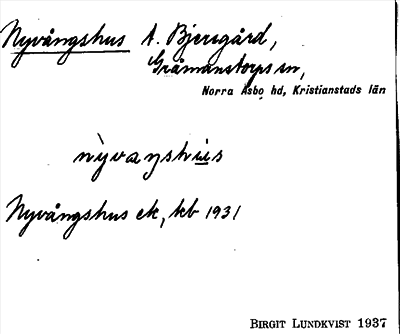 Nyvångshus A. Bjersgård,
Gråmanstorps sn,
Norra Åsbo hd, Kristianstads län
nỳvaŋshu̲̇s
Nyvångshus ek, kb 1931
BIRGIT LUNDKVIST 1937